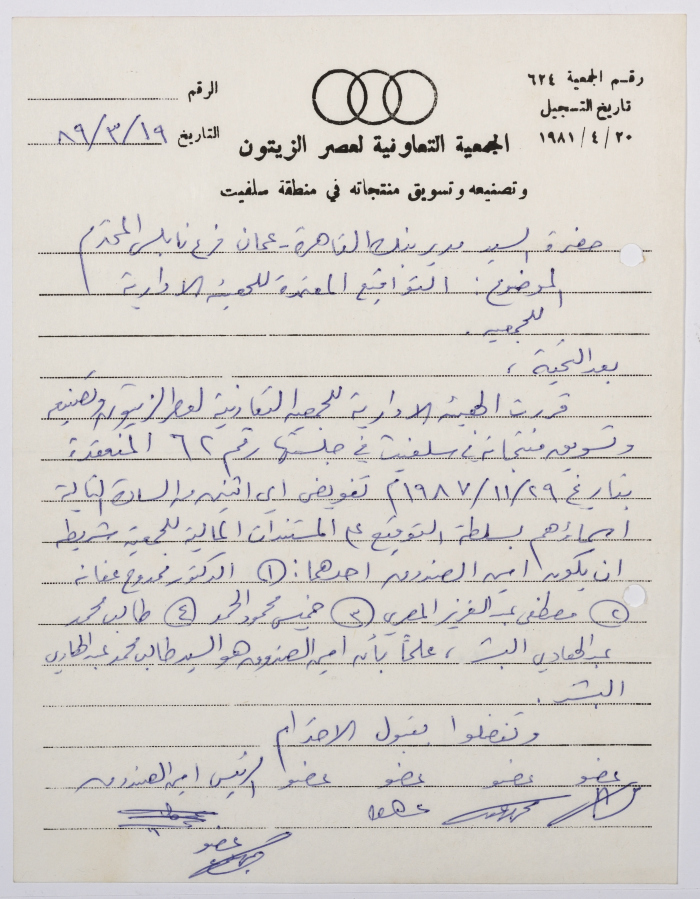 رقم الجمعية ٦٢٤
تاريخ التسجيل
٢٠ / ٤ / ١٩٨١
الرقم
التاريخ ١٩/٣/٨٩
الجمعية التعاونية لعصر الزيتون
وتصنيعه وتسويق منتجاته في منطقة سلفيت
حضرة السيد مدير بنك القاهرة - عمان فرع نابلس المحترم
الموضوع : التواقيع المعتمدة للهيئة الادارية
للجمعيه .
بعد التحية ،
قررت الهيئة الادارية للجمعيه التعاونية لعصر الزيتون وتصنيعه
وتسويق منتجاته في سلفيت في جلستها رقم ٦٢ المنعقدة
بتاريخ ٢٩/١١/١٩٨٧م تفويض اي اثنين من السادة التالية
اسماؤهم بسلطة التوقيع على المستندات المالية للجمعية شريطة
ان يكون امين الصندوق احدهما : ① الدكتور ممدوح عفانه
② مصطفى عبد العزيز المصري ③ خميس محمود الحمد ④ طالب محمد
عبد الهادي البشر ، علماً بأن امين الصندوق هو السيد طالب محمد عبد الهادي
البشر .
وتفضلوا بقبول الاحترام
عضو عضو عضو عضو الرئيس امين الصندوق
عضو